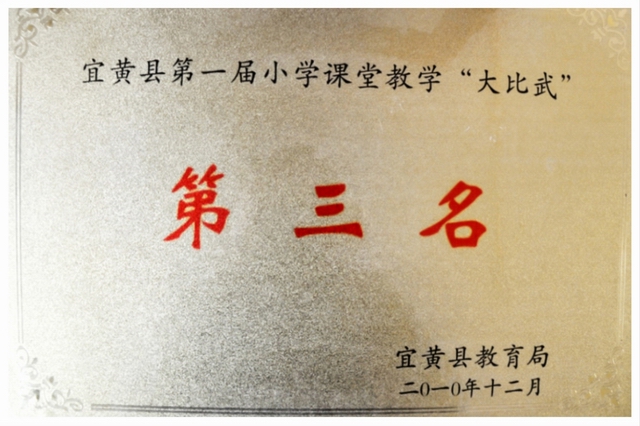 宜黄县第一届小学课堂教学“大比武”
第三名
宜黄县教育局
二0一0年十二月